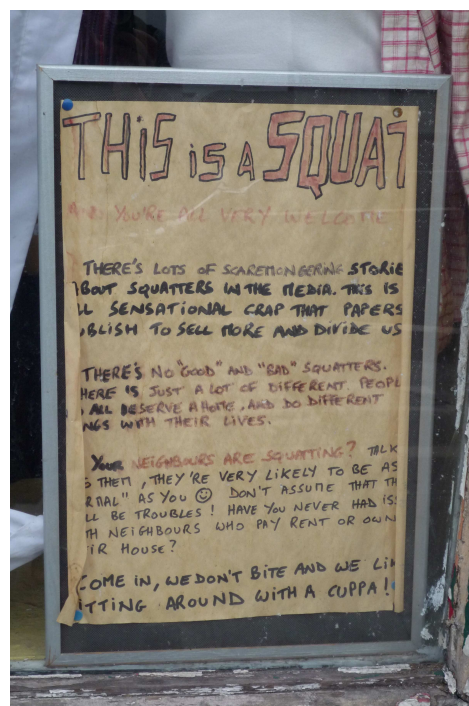 THIS IS A SQUAT
YOU'RE ALL VERY WELCOME
THERE'S LOTS OF SCAREMONGERING STORIE
BOUT SQUATTERS IN THE MEDIA. THIS IS
LL SENSATIONAL CRAP THAT PAPERS
UBLISH TO SELL MORE AND DIVIDE US
THERE'S NO "GOOD" AND "BAD" SQUATTERS.
HERE IS JUST A LOT OF DIFFERENT PEOPL
ALL DESERVE A HOME, AND DO DIFFERENT
NGS WITH THEIR LIVES.
YOUR NEIGHBOURS ARE SQUATTING? TALK
THEM, THEY'RE VERY LIKELY TO BE AS
RMAL" AS YOU ☺ DON'T ASSUME THAT TH
LL BE TROUBLES! HAVE YOU NEVER HAD IS
TH NEIGHBOURS WHO PAY RENT OR OWN
IR HOUSE?
COME IN, WE DON'T BITE AND WE LIK
ITTING AROUND WITH A CUPPA!